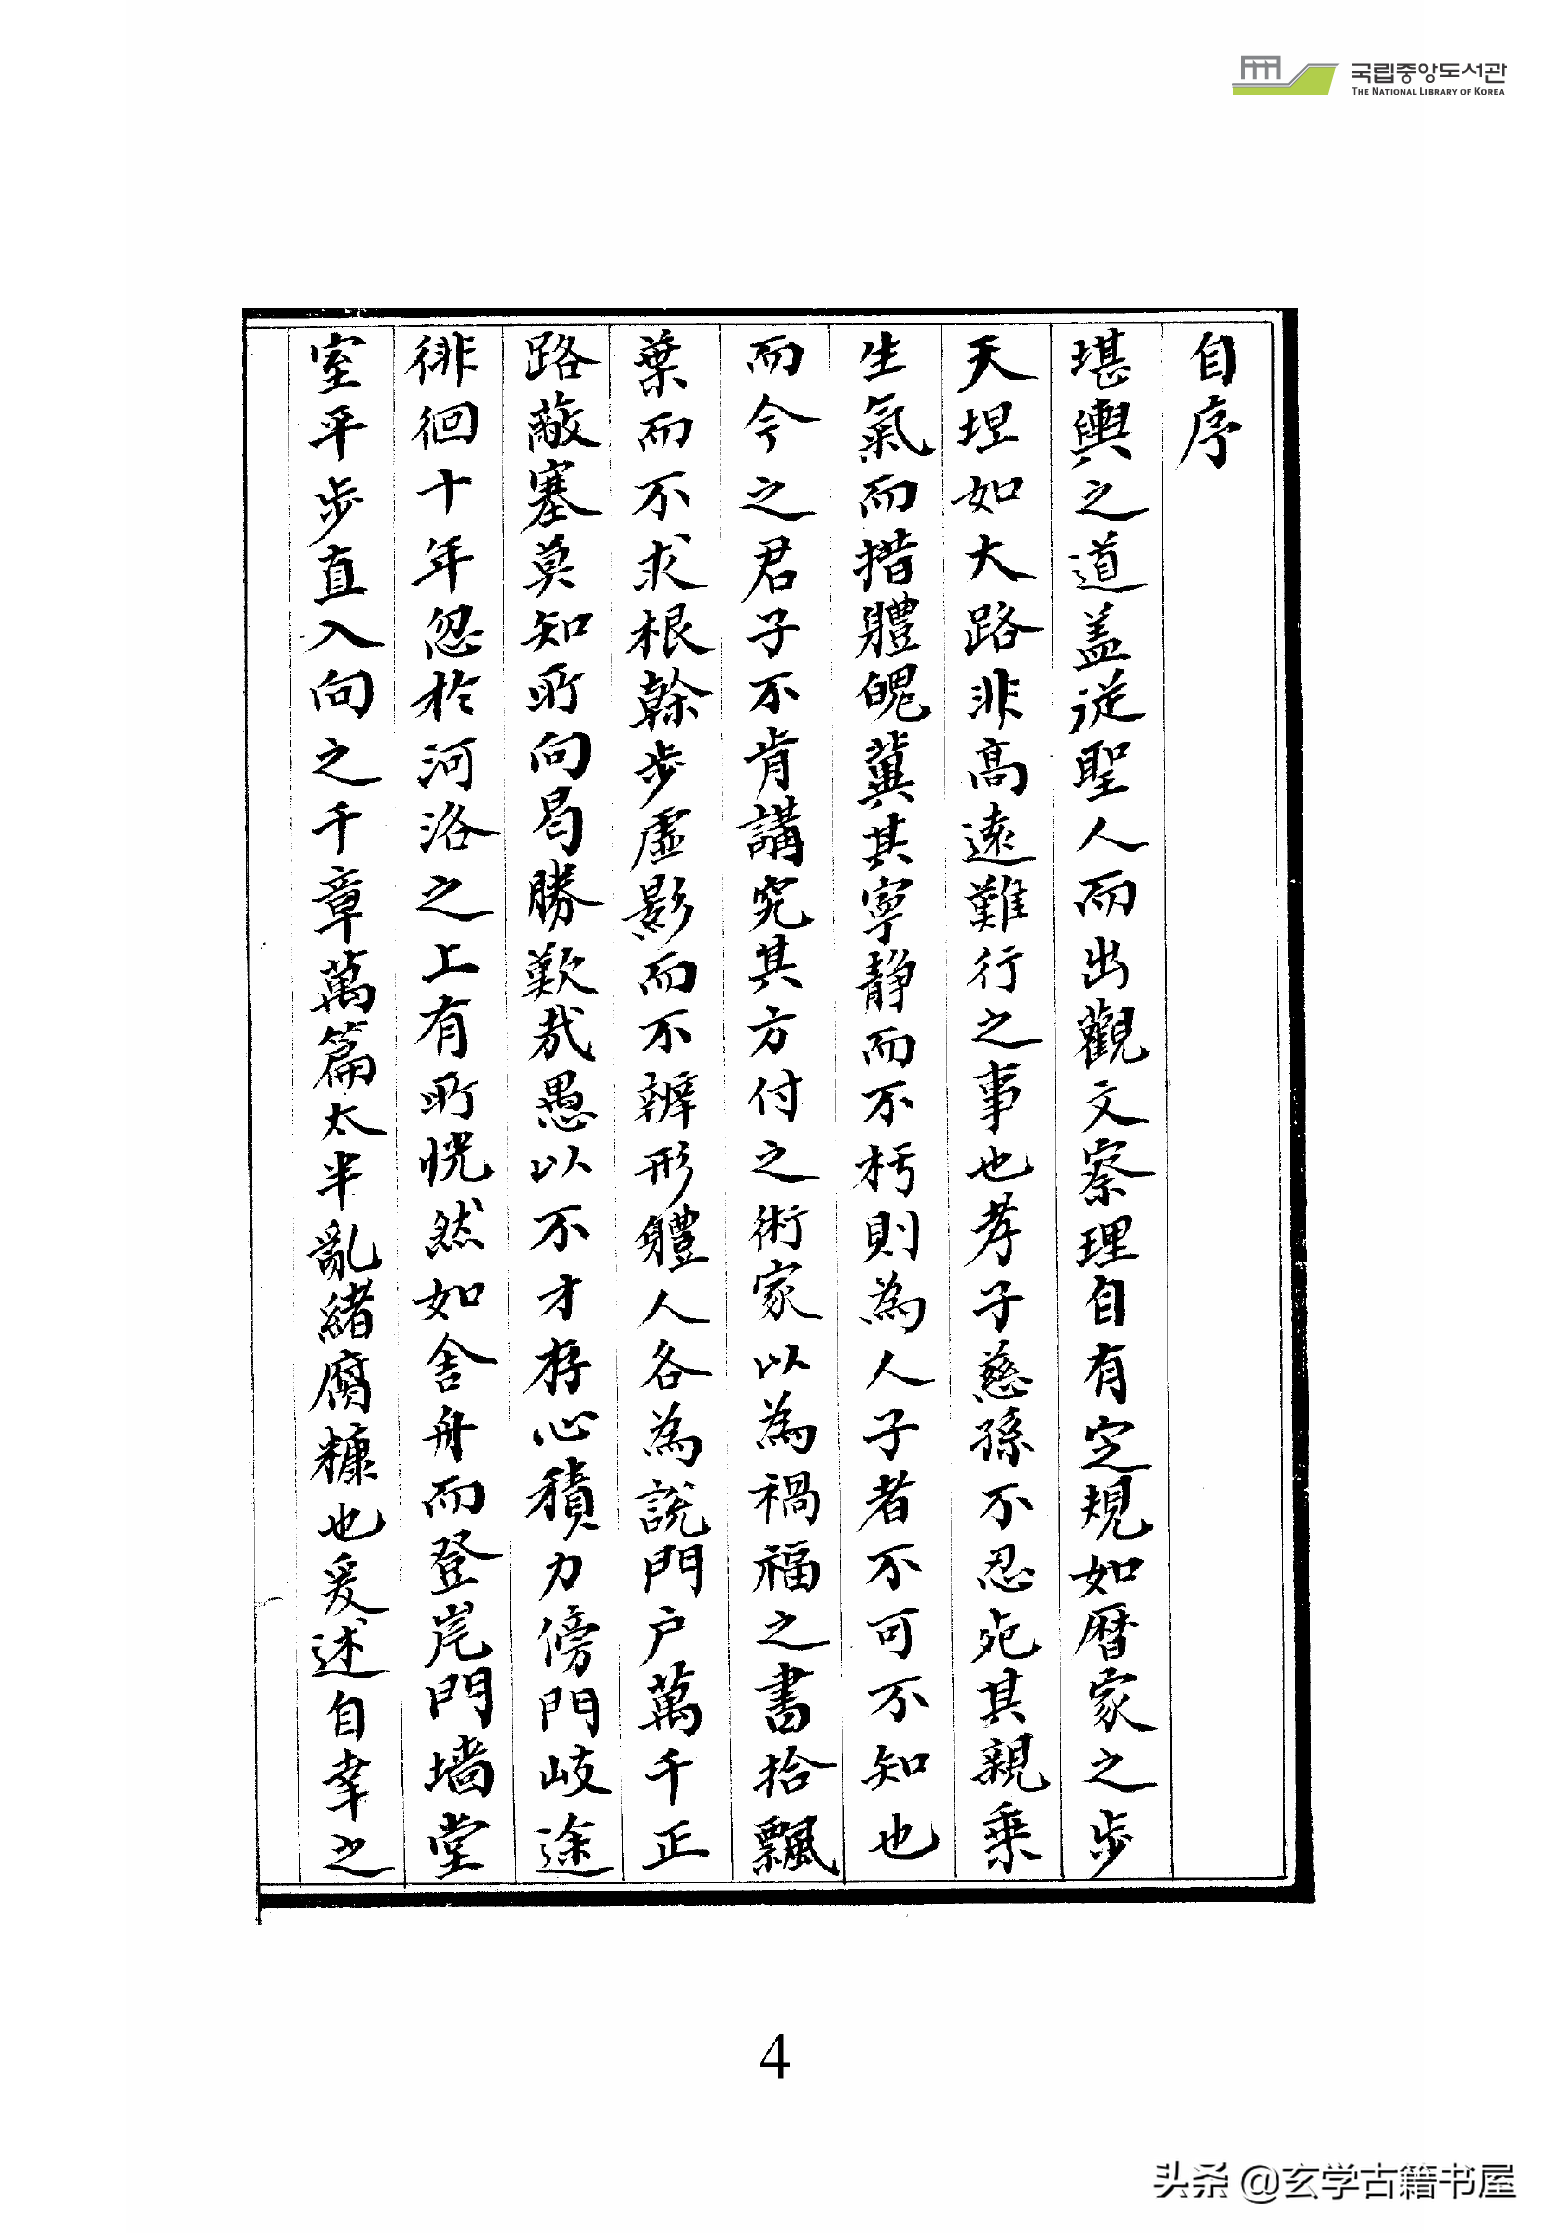 국립중앙도서관
THE NATIONAL LIBRARY OF KOREA
自序
堪輿之道盖從聖人而出觀文察理自有定規如曆家之步
天坦如大路非高遠難行之事也孝子慈孫不忍死其親乗
生氣而措體魄冀其寧静而不朽則為人子者不可不知也
而今之君子不肯講究其方付之術家以為禍福之書拾飄
葉而不求根榦步虛影而不辨形體人各為説門户萬千正
路蔽塞莫知所向曷勝歎哉愚以不才存心積力傍門岐途
徘徊十年忽於河洛之上有所恍然如舍舟而登岸門墻堂
室平步直入向之千章萬篇太半亂緒腐糠也爰述自幸之
4
头条 @玄学古籍书屋